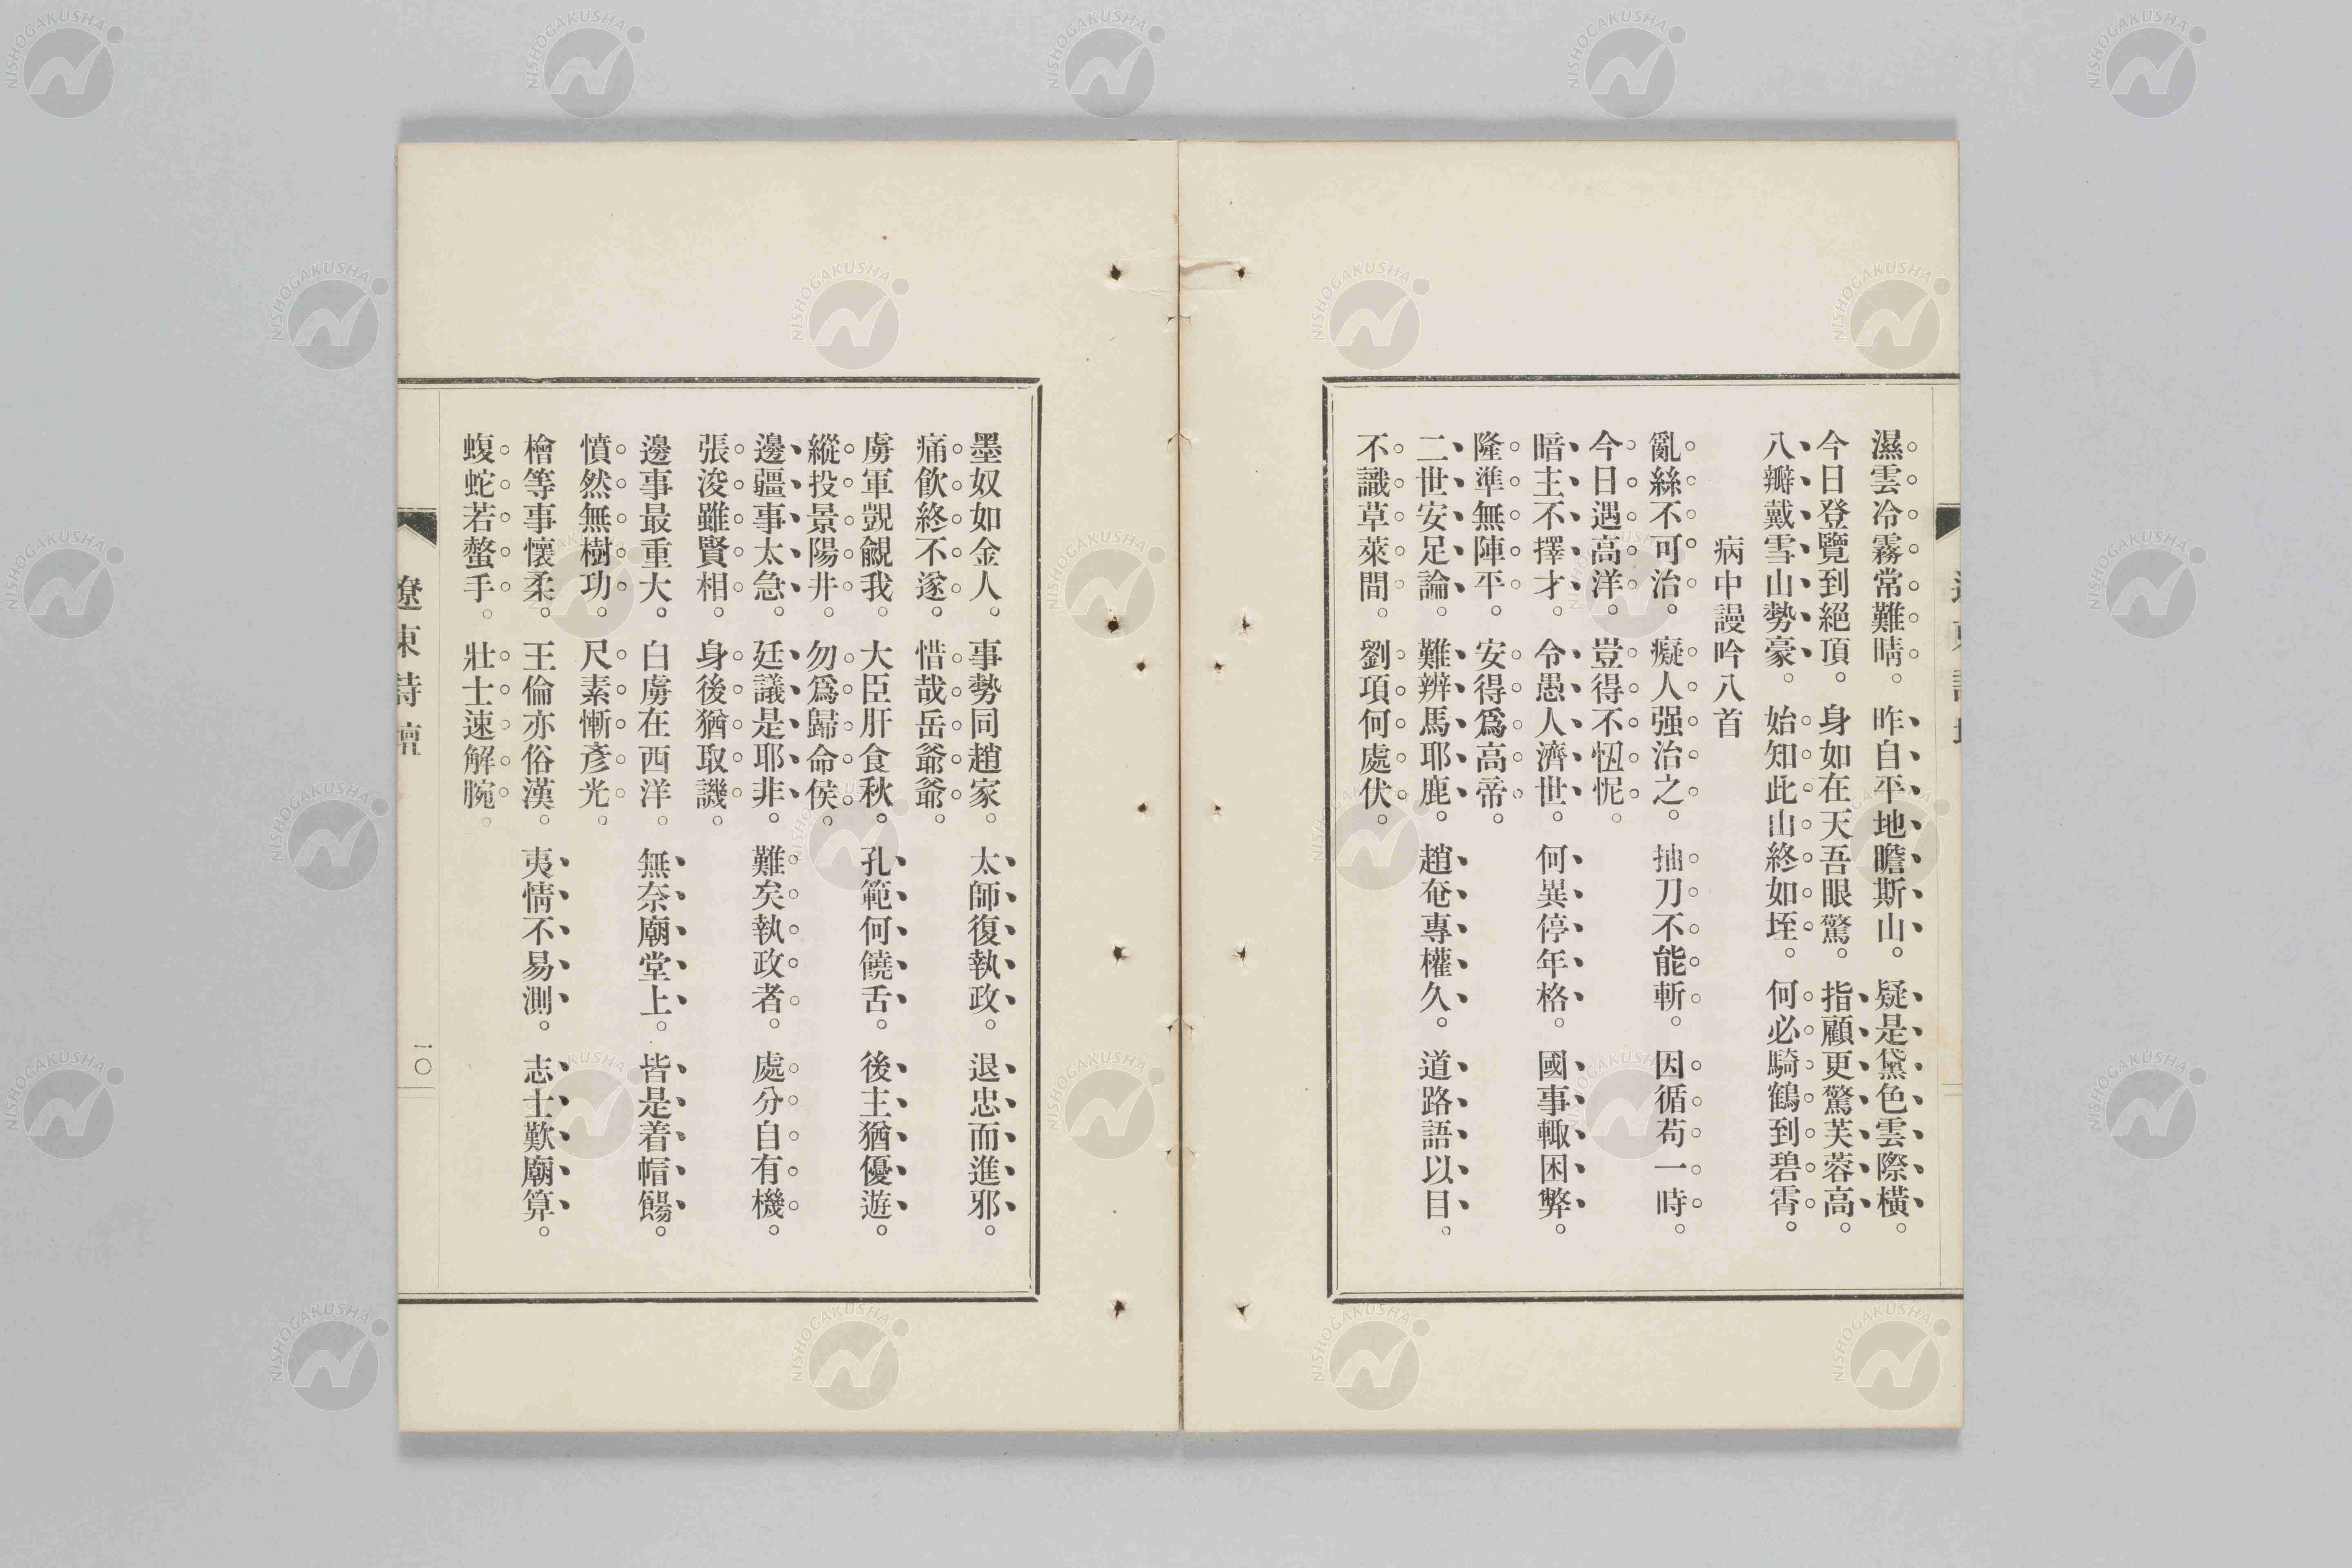 濕雲冷霧常難晴。昨自平地瞻斯山。疑是黛色雲際橫。
今日登覽到絕頂。身如在天吾眼驚。指顧更驚芙蓉高。
八瓣戴雪山勢豪。始知此山終如垤。何必騎鶴到碧霄。
病中謾吟八首
亂絲不可治。癡人强治之。抽刀不能斬。因循苟一時。
今日遇高洋。豈得不忸怩。
暗主不擇才。令愚人濟世。何異停年格。國事輙困弊。
隆準無陣平。安得爲高帝。
二世安足論。難辨馬耶鹿。趙奄專權久。道路語以目。
不識草萊間。劉項何處伏。
墨奴如金人。事勢同趙家。太師復執政。退忠而進邪。
痛飮終不遂。惜哉岳爺爺。
虜軍覬覦我。大臣肝食秋。孔範何饒舌。後主猶優遊。
縱投景陽井。勿爲歸命侯。
邊疆事太急。廷議是耶非。難矣執政者。處分自有機。
張浚雖賢相。身後猶取譏。
邊事最重大。白虜在西洋。無奈廟堂上。皆是着帽餳。
憤然無樹功。尺素慚彥光。
檜等事懷柔。王倫亦俗漢。夷情不易測。志士歎廟算。
蝮蛇若螫手。壯士速解腕。
遼東詩壇
一〇
NISHOGAKUSHA